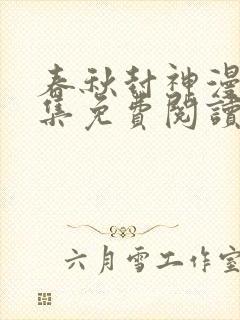 春秋封神漫
集免費閱讀
六月雪工作室